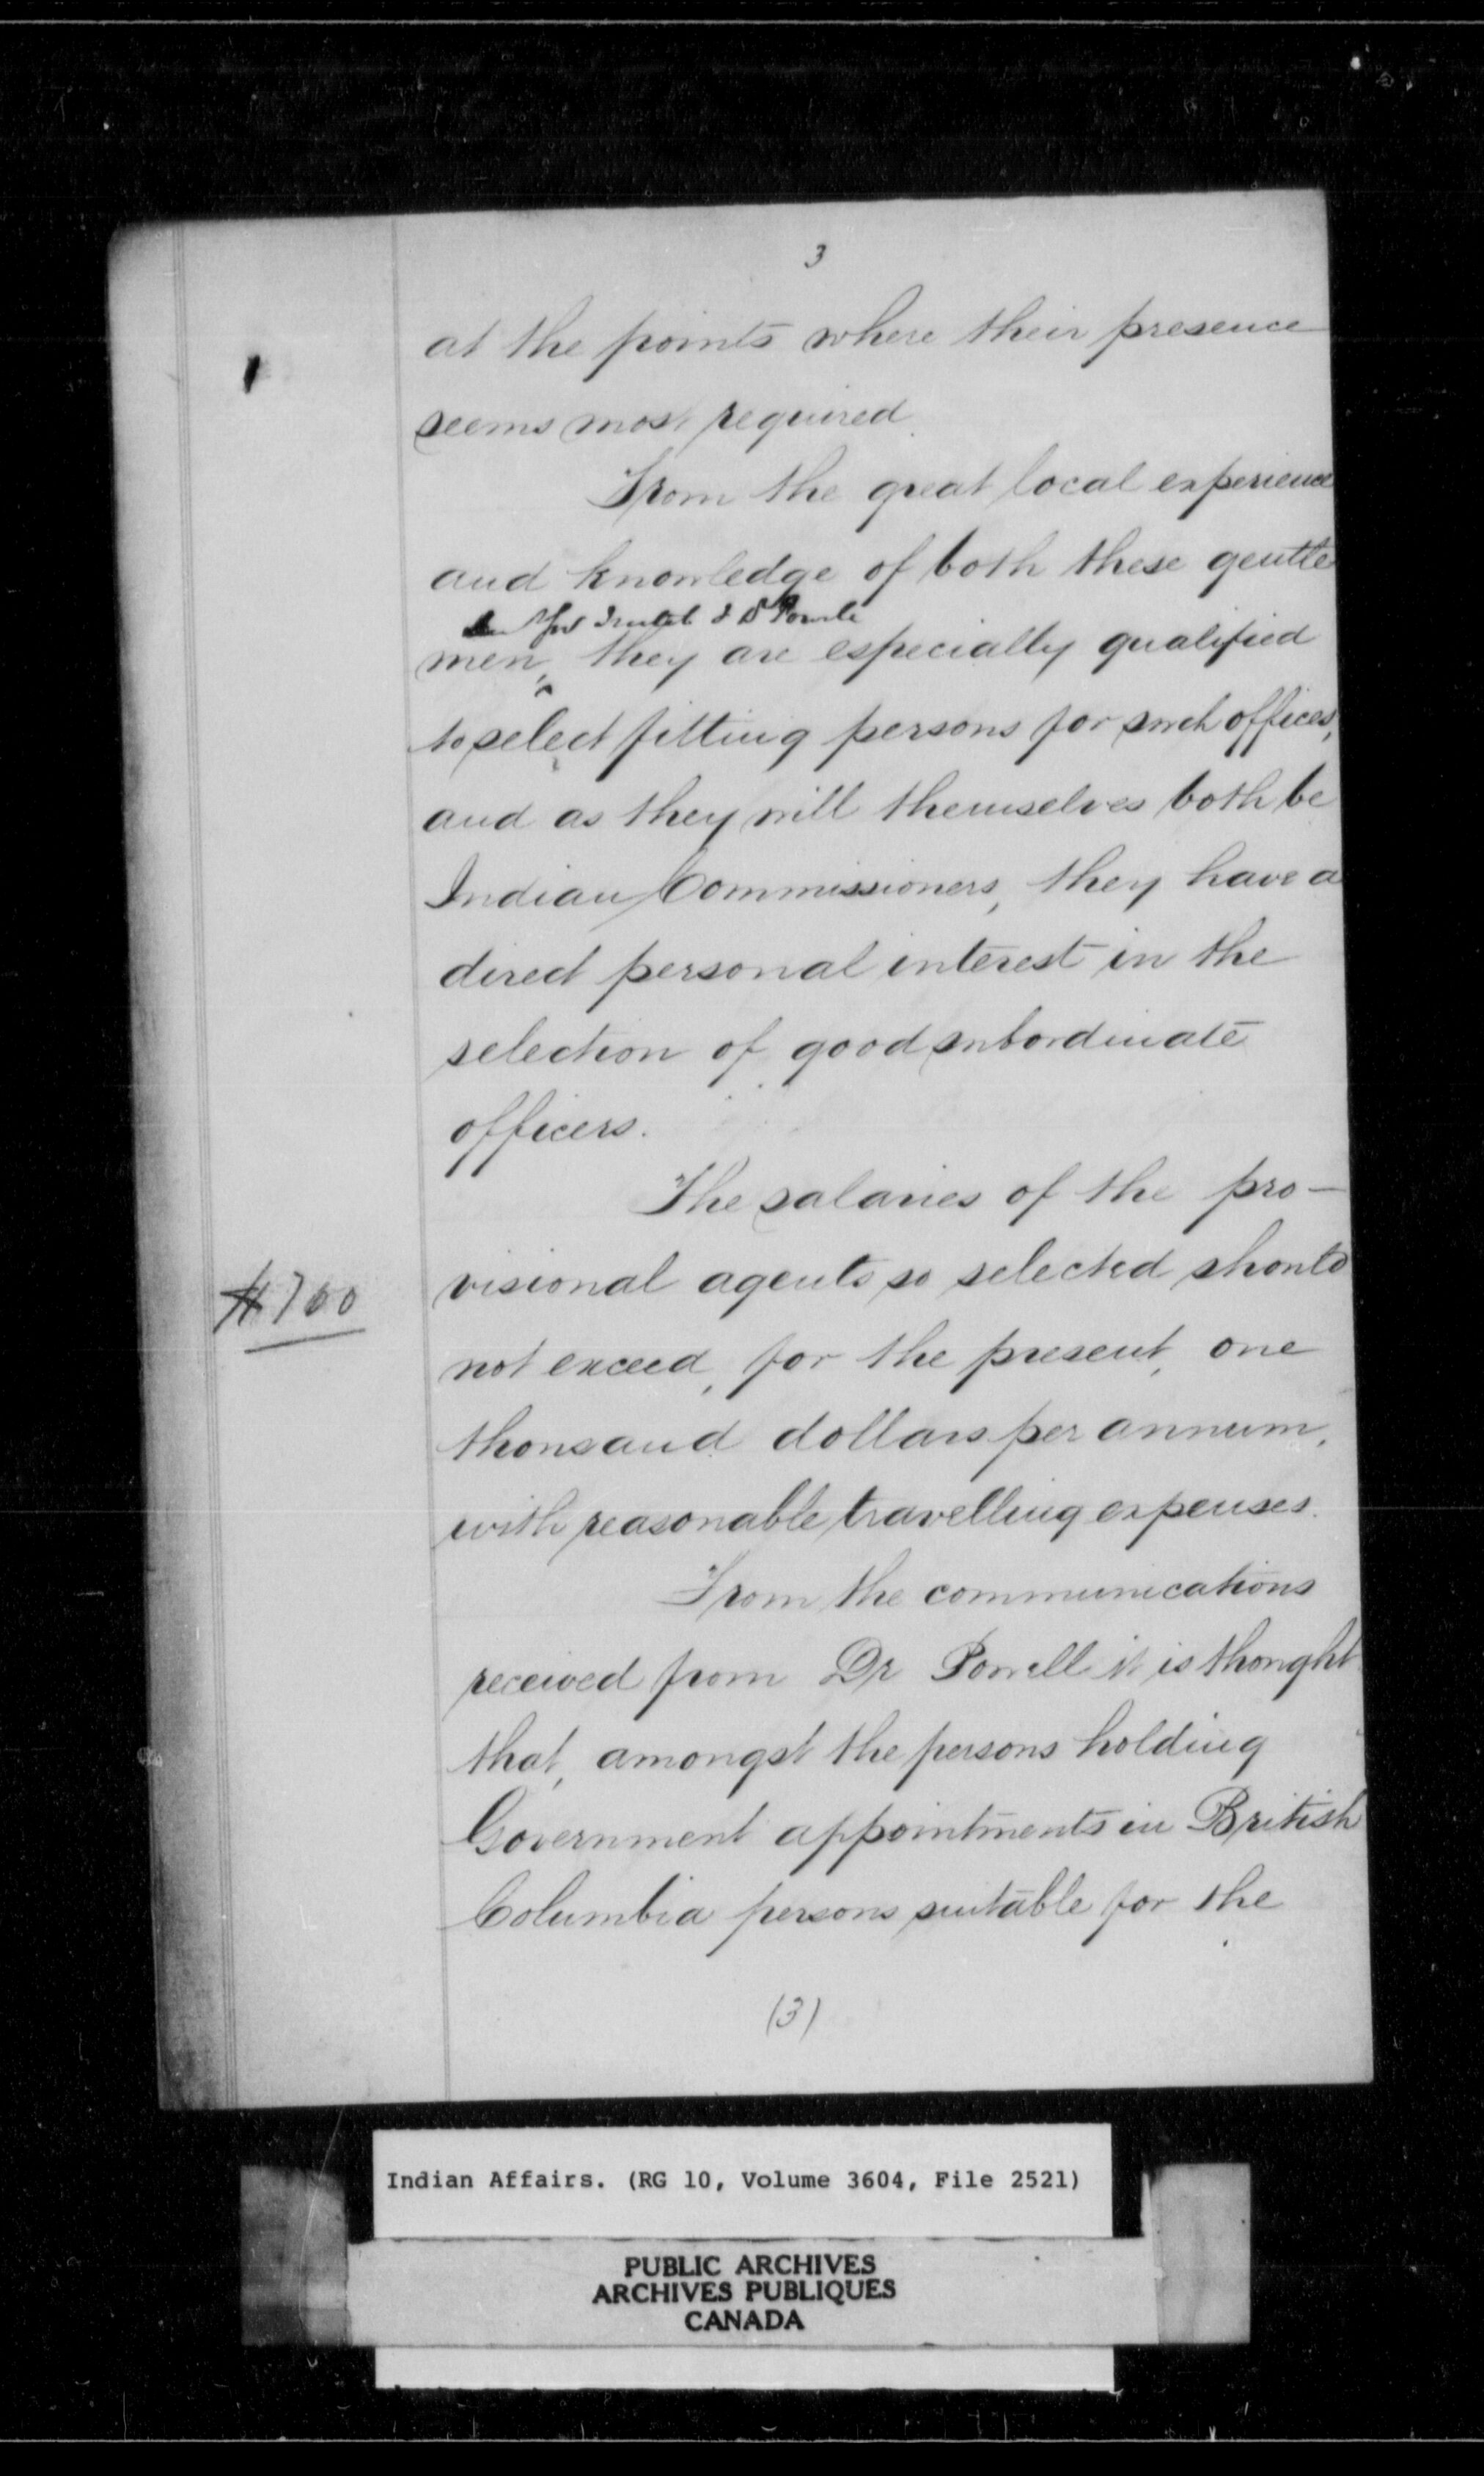 3
at the points where their presence
seems most required.
From the great local experience
and knowledge of both these gentle
Trutch & D Powell
men, they are especially qualified
to select fitting persons for such offices,
and as they will themselves both be
Indian Commissioners, they have a
direct personal interest in the
selection of good subordinate
officers.
The salaries of the pro-
visional agents so selected should
$700
not exceed, for the present, one
thousand dollars per annum,
with reasonable travelling expenses.
From the communications
received from Dr Powell it is thought
that, amongst the persons holding
Government appointments in British
Columbia persons suitable for the
(3)
Indian Affairs. (RG 10, Volume 3604, File 2521)
PUBLIC ARCHIVES
ARCHIVES PUBLIQUES
CANADA